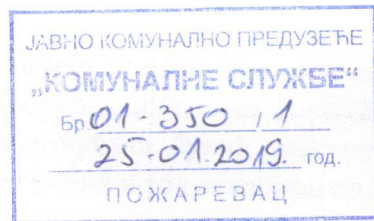 ЈАВНО КОМУНАЛНО ПРЕДУЗЕЋЕ
„КОМУНАЛНЕ СЛУЖБЕ“
Бр. 01-350 / 1
25.01.2019. год.
ПОЖАРЕВАЦ